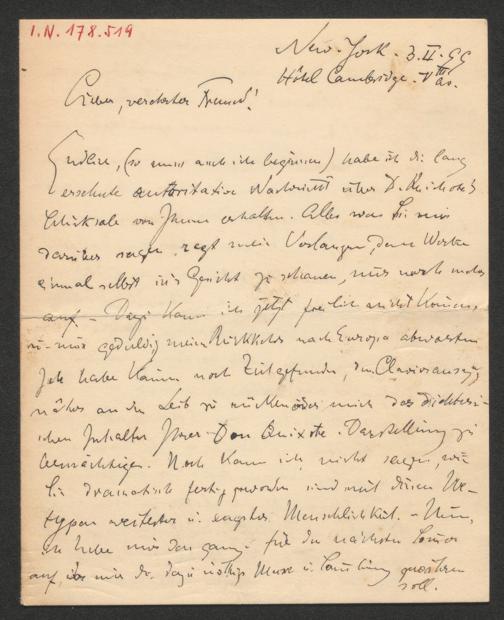 I.N. 178.519
New-York. 3.II.99
Hôtel Cambridge. Vth av.
Lieber, verehrter Freund!
Endlich, (so muss auch ich beginnen) habe ich die lang
ersehnte authoritative Nachricht über D. Quichote's
Schicksale von Ihnen erhalten. Alles was Sie mir
darüber sagen, regt mein Verlangen, dem Werke
einmal selbst in's Gesicht zu schauen, nur noch mehr
auf. - Dazu kann ich jetzt freilich nicht kommen
u. muss geduldig meine Rückkehr nach Europa abwarten
Ich habe kaum noch Zeit gefunden, dem Clavierauszug
näher an den Leib zu rücken oder mich des dichteri-
schen Inhaltes Ihrer Don Quixote-Darstellung zu
bemächtigen. Noch kann ich nicht sagen, wie
Sie dramatisch fertig geworden sind mit diesen Ur-
typen weitester u. engster Menschlichkeit. - Nun,
ich hebe mir das ganze für den nächsten Sommer
auf, der mir die dazu nöthige Musse u. Sammlung gewähren
soll.